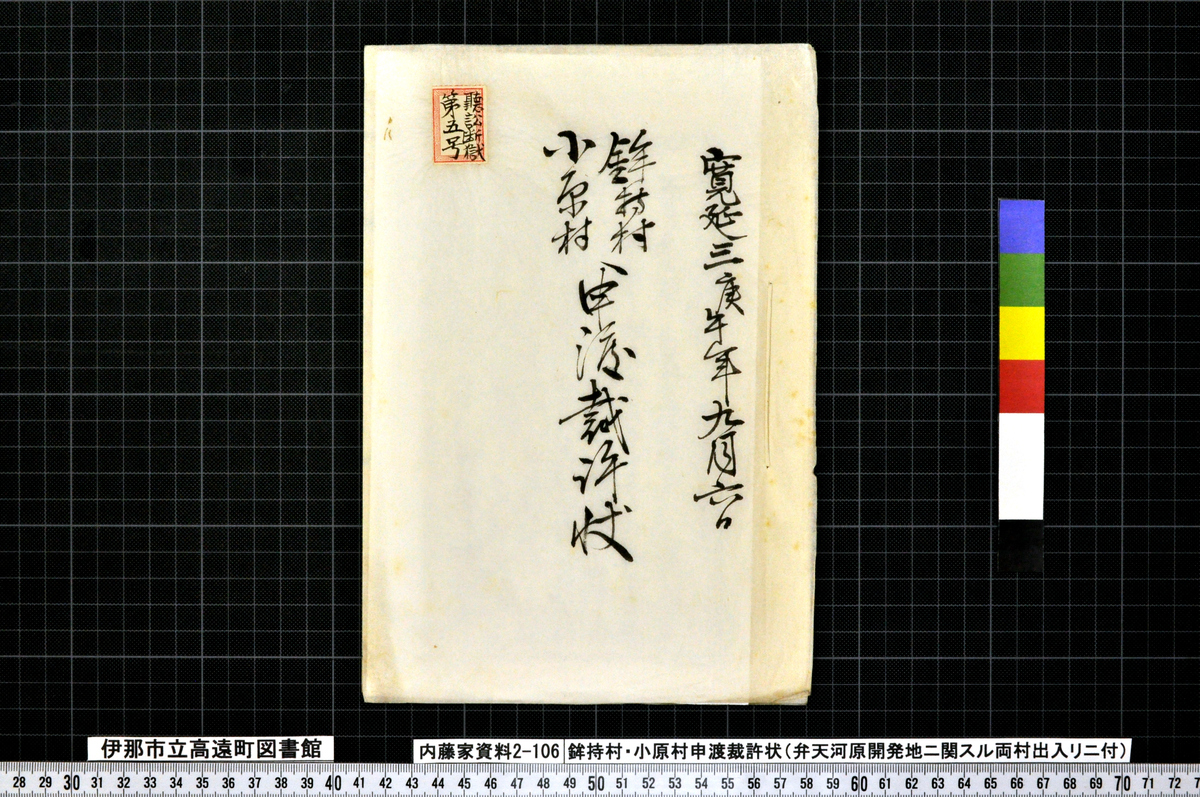 寛延三庚午年九月六日
鉾持村
小原村
申渡裁許状
聴訟断獄
第五号
伊那市立高遠町図書館
内藤家資料2-106
鉾持村・小原村申渡裁許状(弁天河原開発地ニ関スル両村出入リニ付)
28 29 30 31 32 33 34 35 36 37 38 39 40 41 42 43 44 45 46 47 48 49 50 51 52 53 54 55 56 57 58 59 60 61 62 63 64 65 66 67 68 69 70 71 72